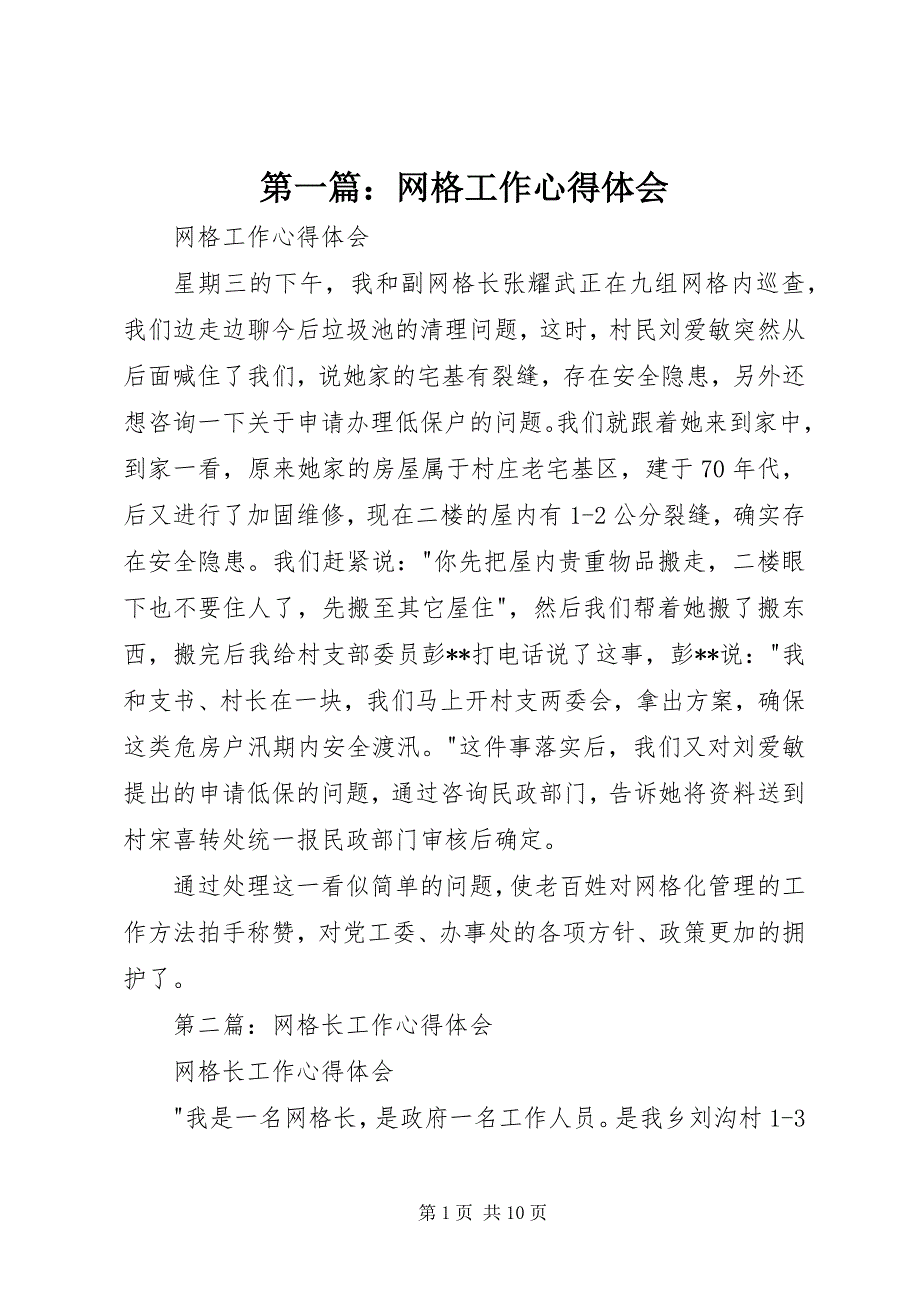 第一篇：网格工作心得体会
网格工作心得体会
星期三的下午，我和副网格长张耀武正在九组网格内巡查，
我们边走边聊今后垃圾池的清理问题，这时，村民刘爱敏突然从
后面喊住了我们，说她家的宅基有裂缝，存在安全隐患，另外还
想咨询一下关于申请办理低保户的问题。我们就跟着她来到家中，
到家一看，原来她家的房屋属于村庄老宅基区，建于 70 年代，
后又进行了加固维修，现在二楼的屋内有 1-2 公分裂缝，确实存
在安全隐患。我们赶紧说："你先把屋内贵重物品搬走，二楼眼
下也不要住人了，先搬至其它屋住"，然后我们帮着她搬了搬东
西，搬完后我给村支部委员彭**打电话说了这事，彭**说："我
和支书、村长在一块，我们马上开村支两委会，拿出方案，确保
这类危房户汛期内安全渡汛。"这件事落实后，我们又对刘爱敏
提出的申请低保的问题，通过咨询民政部门，告诉她将资料送到
村宋喜转处统一报民政部门审核后确定。
通过处理这一看似简单的问题，使老百姓对网格化管理的工
作方法拍手称赞，对党工委、办事处的各项方针、政策更加的拥
护了。
第二篇：网格长工作心得体会
网格长工作心得体会
"我是一名网格长，是政府一名工作人员。是我乡刘沟村 1-3
第 1 页 共 10 页